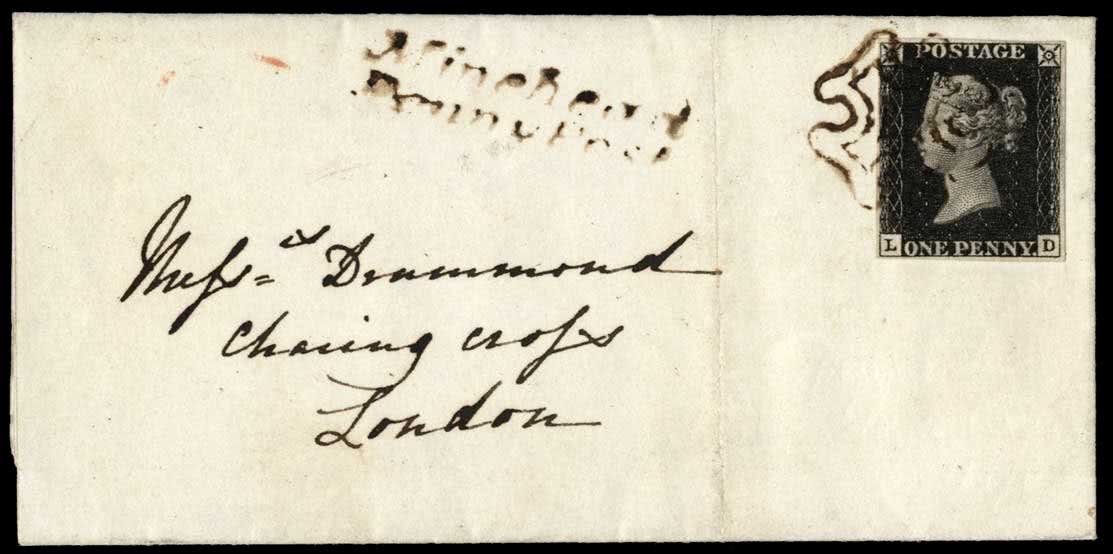 Minehead
Penny Post
POSTAGE
L ONE PENNY. D
Messrs= Drummond
Charing Cross
London